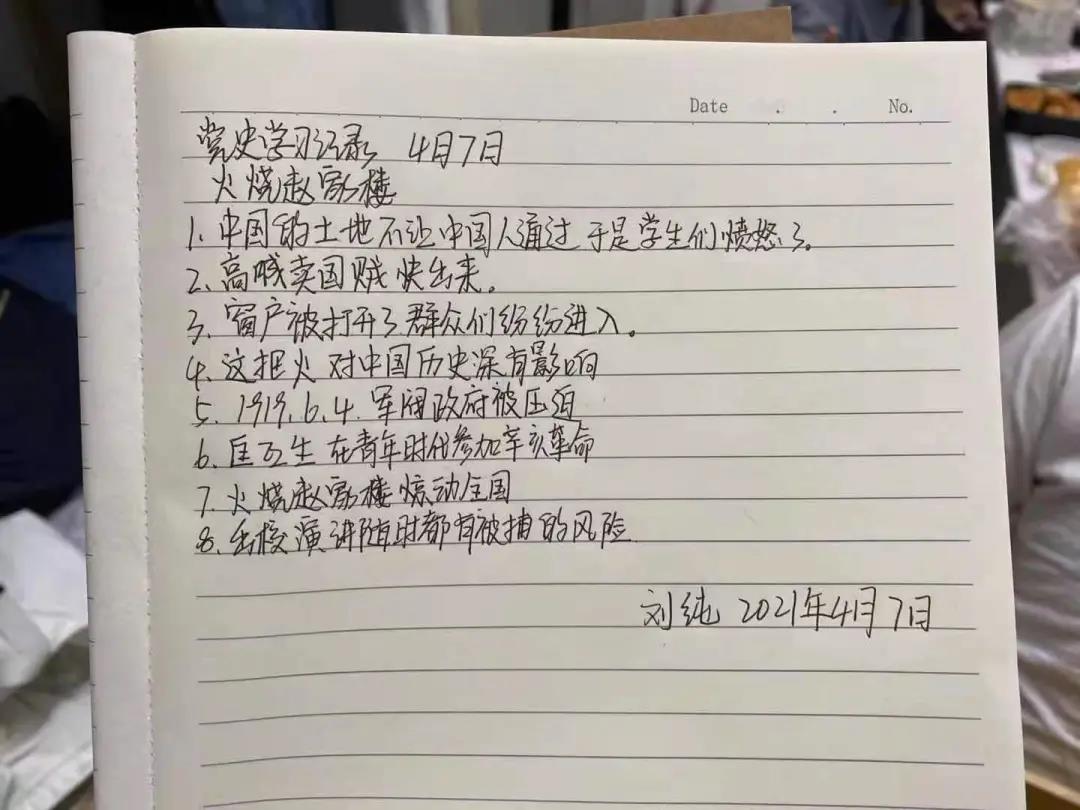 Date . . No.
党史学习记录 4月7日
火烧赵家楼
1. 中国的土地不让中国人通过 于是学生们愤怒了。
2、高喊卖国贼快出来。
3、窗户被打开了群众们纷纷进入。
4、这把火对中国历史深有影响
5、1919.6.4.军阀政府被压迫
6、匡互生在青年时代参加辛亥革命
7、火烧赵家楼惊动全国
8、出校演讲随时都有被捕的风险
刘纯 2021年4月7日